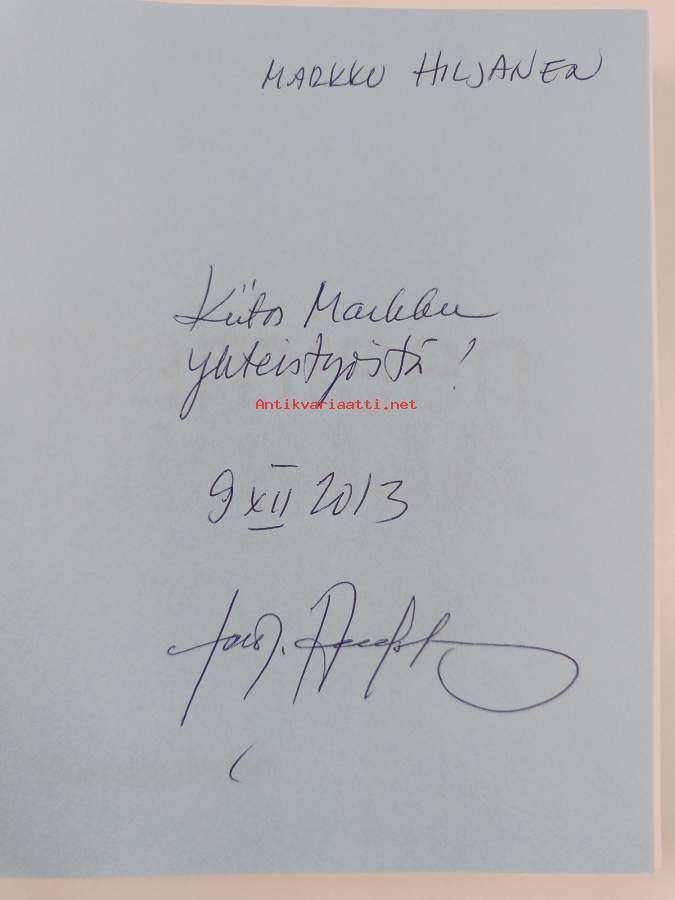 MARKKU HILJANEN
Kiitos Markku
yhteistyöstä!
Antikvariaatti.net
9 XII 2013